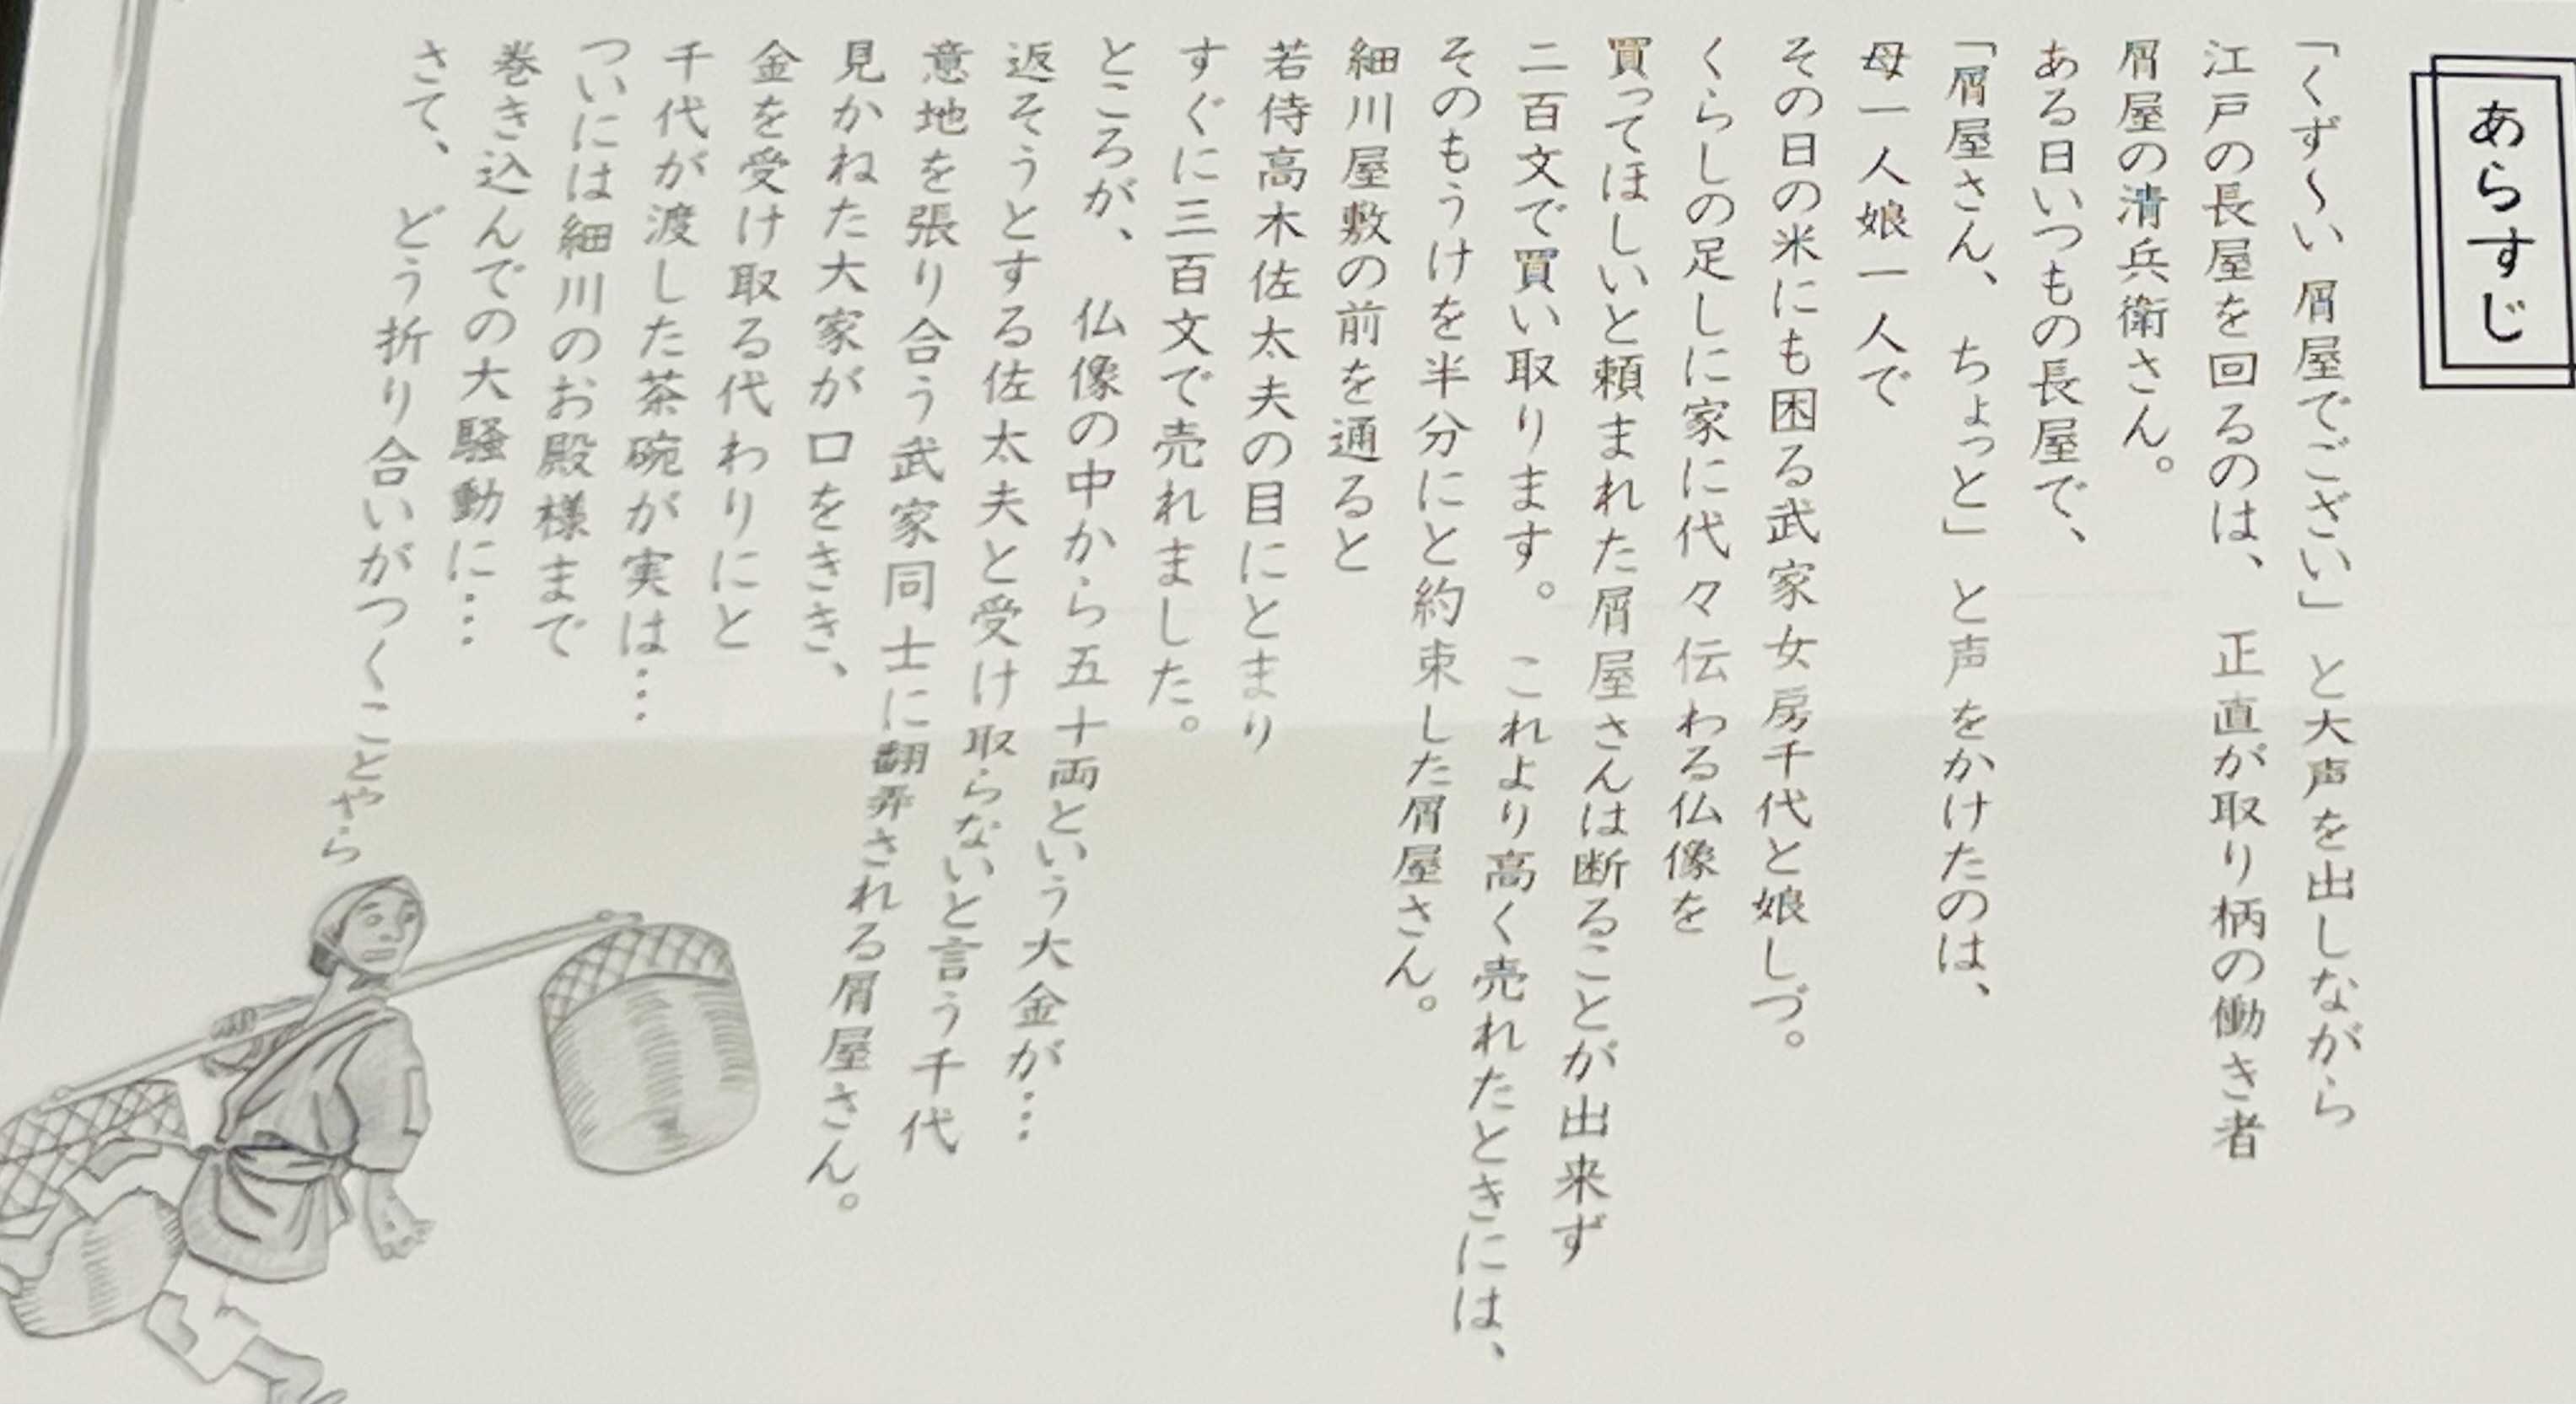 あらすじ
「くず～い 屑屋でござい」と大声を出しながら
江戸の長屋を回るのは、正直が取り柄の働き者
屑屋の清兵衛さん。
ある日いつもの長屋で、
「屑屋さん、ちょっと」と声をかけたのは、
母一人娘一人で
その日の米にも困る武家女房千代と娘しづ。
くらしの足しに家に代々伝わる仏像を
買ってほしいと頼まれた屑屋さんは断ることが出来ず
二百文で買い取ります。これより高く売れたときには、
そのもうけを半分にと約束した屑屋さん。
細川屋敷の前を通ると
若侍高木佐太夫の目にとまり
すぐに三百文で売れました。
ところが、仏像の中から五十両という大金が…
返そうとする佐太夫と受け取らないと言う千代
意地を張り合う武家同士に翻弄される屑屋さん。
見かねた大家が口をきき、
金を受け取る代わりにと
千代が渡した茶碗が実は…
ついには細川のお殿様まで
巻き込んでの大騒動に…
さて、どう折り合いがつくことやら